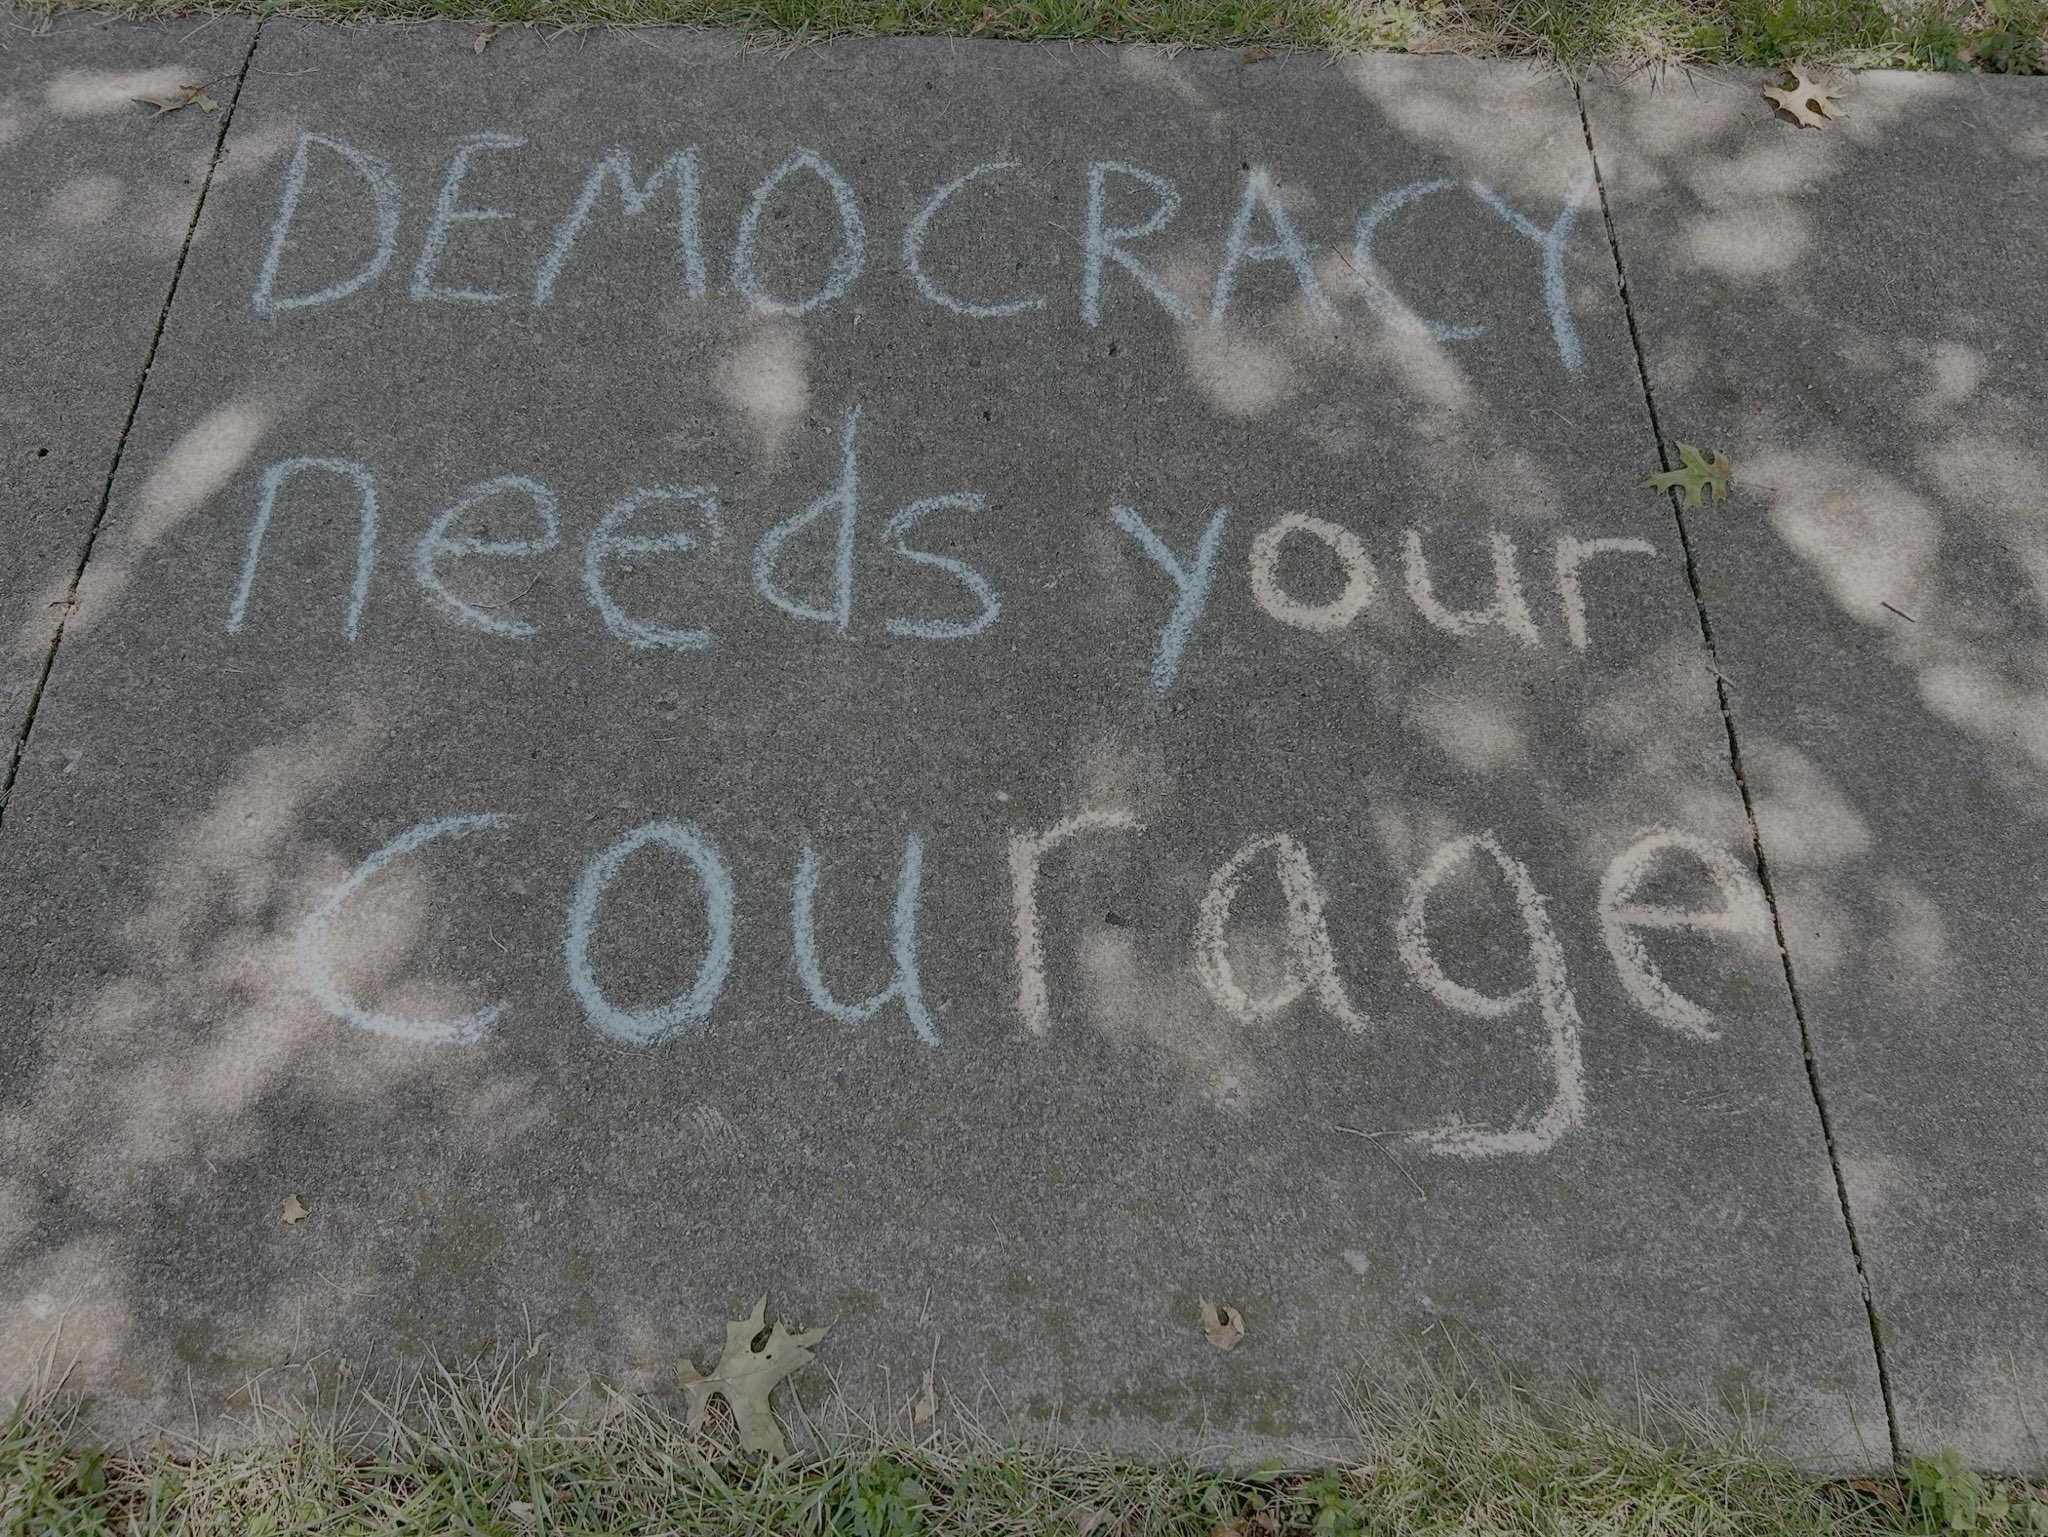 DEMOCRACY
needs your
courage